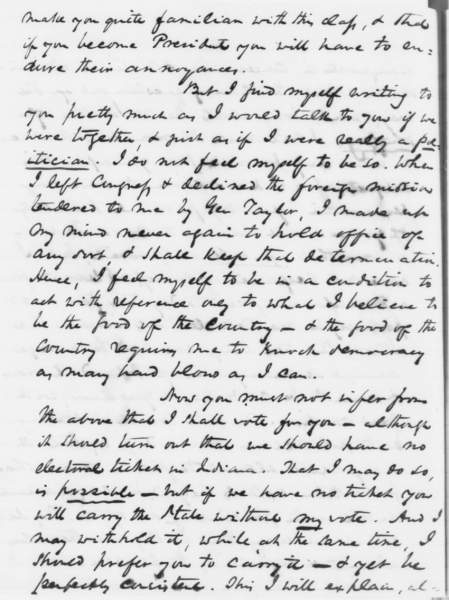 make you quite familiar with this class, & that
if you become President you will have to en-
dure their annoyances.
But I find myself writing to
you pretty much as I would talk to you if we
were together, & just as if I were really a pol-
itician. I do not feel myself to be so. When
I left Congress & declined the foreign mission
tendered to me by Gen Taylor, I made up
my mind never again to hold office of
any sort, & shall keep that determination.
Hence, I feel myself to be in a condition to
act with reference only to what I believe to
be the good of the country — & the good of the
country requires me to knock democracy
as many hard blows as I can.
Now you must not infer from
the above that I shall vote for you — although
it should turn out that we should have no
electoral ticket in Indiana. That I may do so,
is possible — but if we have no ticket you
will carry the State without my vote. And I
may withhold it, while at the same time, I
should prefer you to carry it — & yet be
perfectly consistent. This I will explain, al-